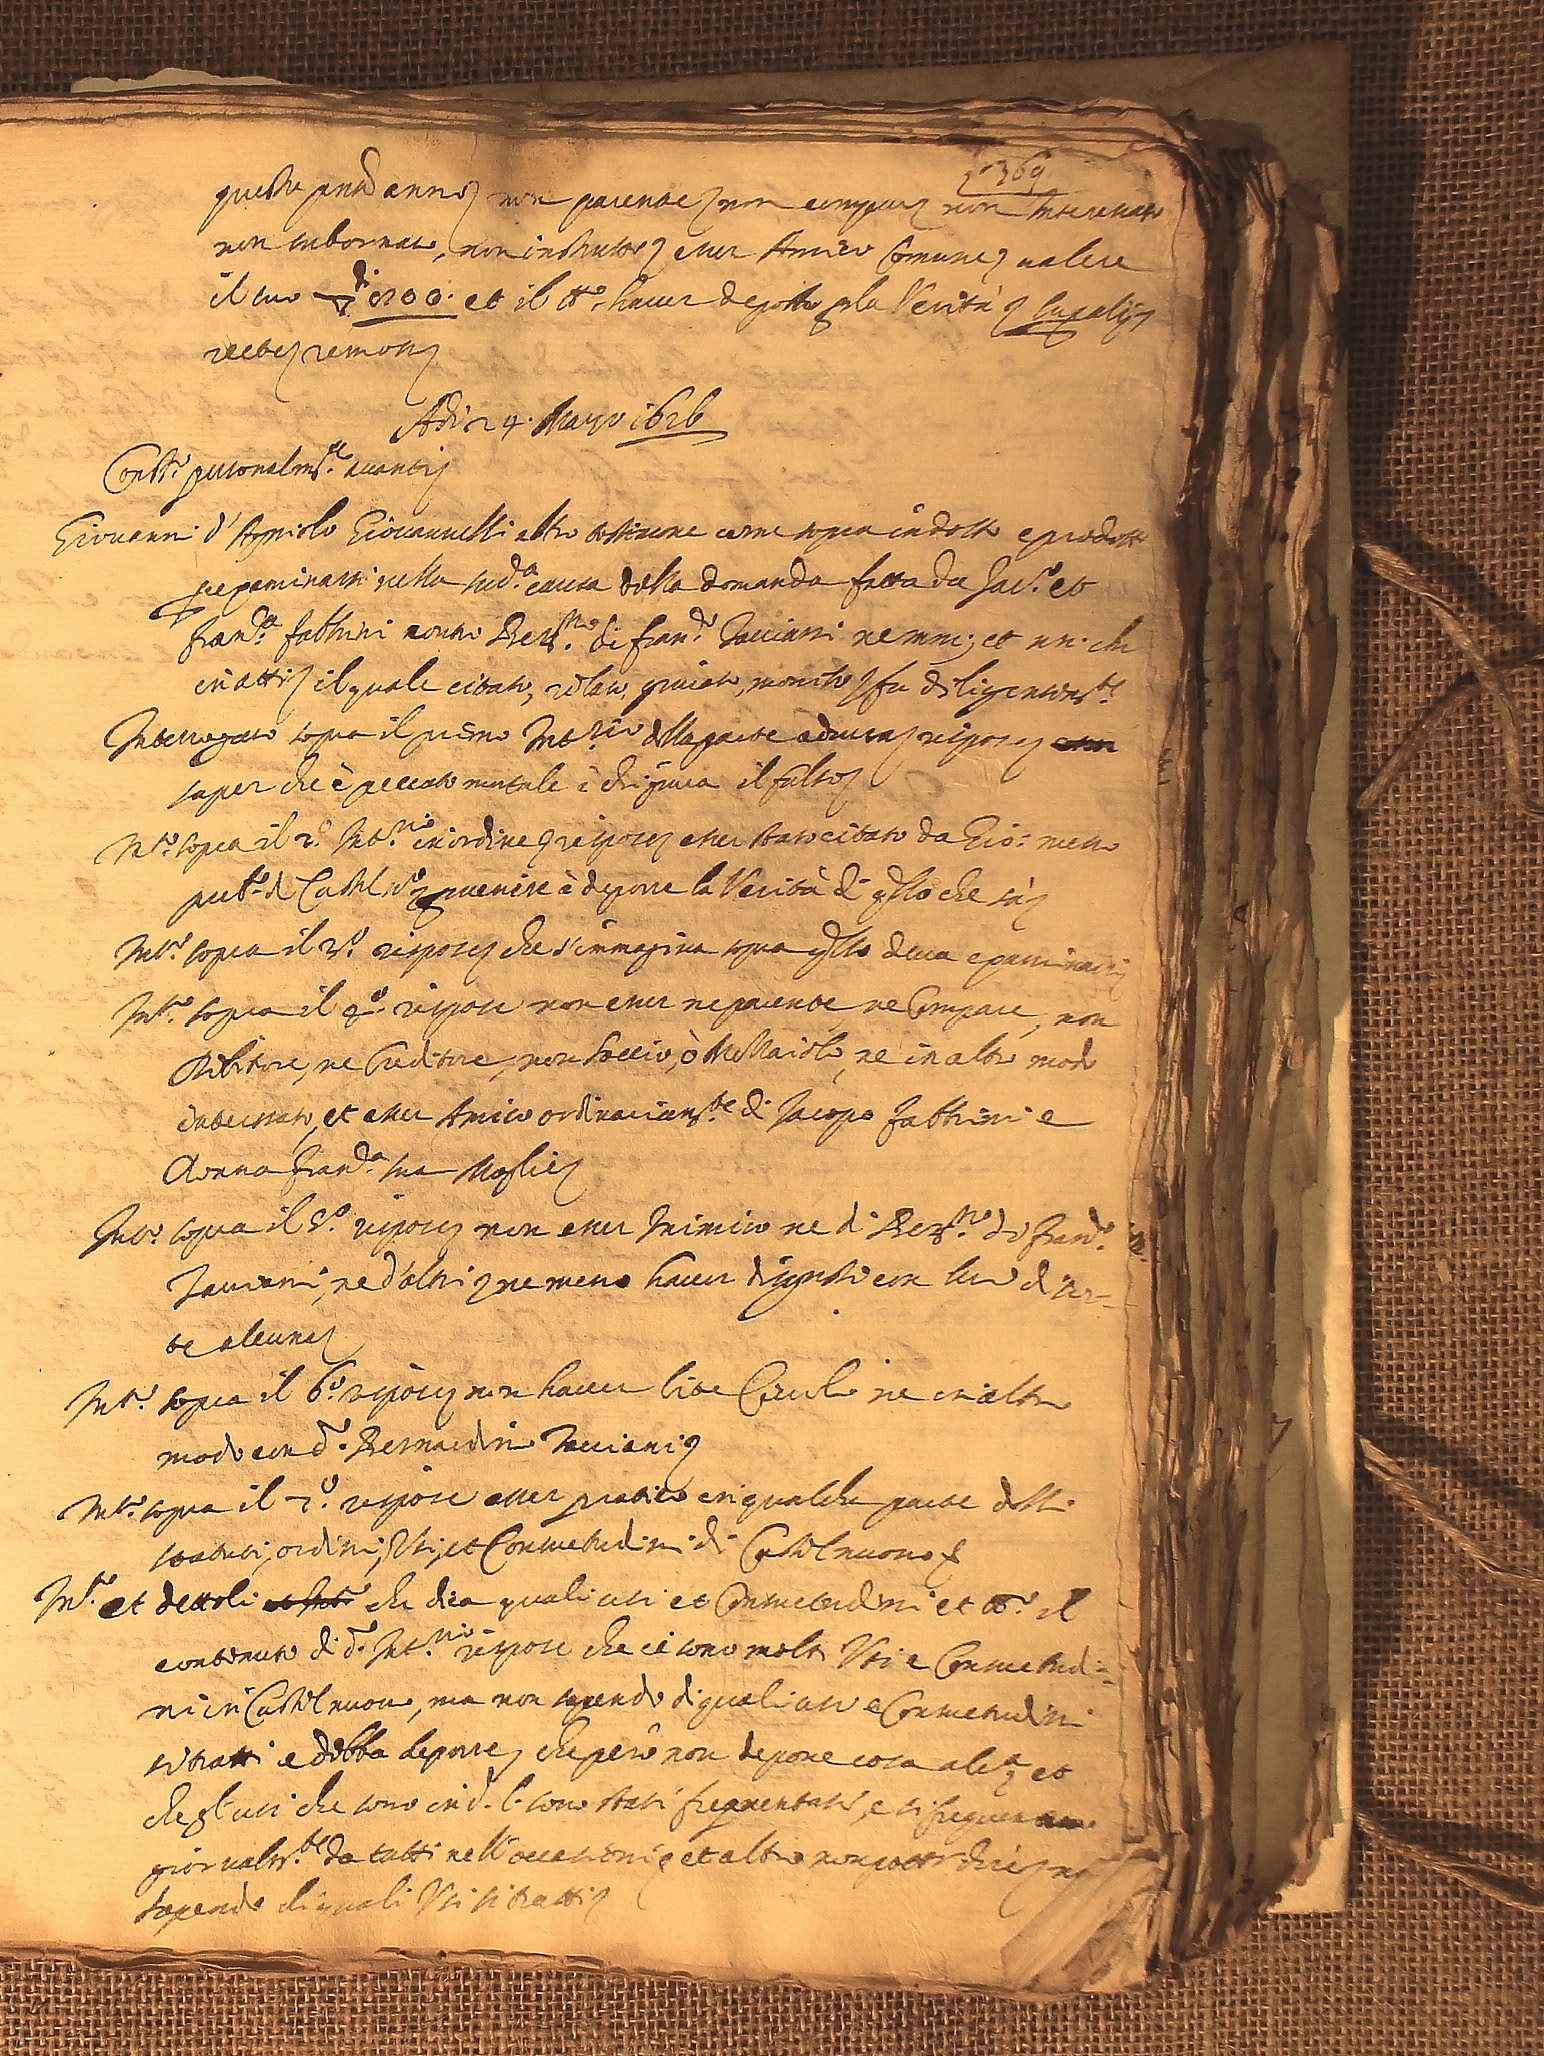 369
questi anni, non parente, non compare, non interessato
non subornato, non instrutto, esser Amico Comune, valere
il suo di 200. et il tt.º haver deposto p la Verità,
Adi 24. Marzo 1626
Const.º personalm.te avanti
Giovanni d'Agniolo Giovannelli altro testimone come sopra indotto e prodotto
p examinarsi nella sud.a causa della domanda fatta da Jac.º et
Fran.ca Fabbrini contro Ber.no di Fran.co Tacciani
in atti, il quale citato, giurato, monito, fu diligentem.te
Interrogato sopra il primo Int.rio della parte adversa, rispose,
saper che è peccato mortale à chi giura il falso,
Int.º sopra il 2.º Int.rio in ordine, rispose, esser stato citato da Gio: messo
pub.º di Castel n.º p venire à deporre la Verità di q.llo che sà,
Int.º sopra il 3.º rispose, che s'immagina sopra q.llo deva examinarsi,
Int.º sopra il 4.º rispose non esser ne parente, ne Compare, non
Debitore, ne Creditore, non soccio, ò Mezzaiolo, ne in altro modo
interessato, et esser Amico ordinariam.te di Jacopo Fabbrini e
donna Fran.ca sua Moglie,
Int.º sopra il 5.º rispose, non esser Inimico ne di Ber.no di Fran.co
Tacciani, ne d'altri, ne meno haver disgusti con lui di sor-
te alcuna,
Int.º sopra il 6.º rispose, non haver lite Civile ne in altro
modo con d.º Bernardino Tacciani,
Int.º sopra il 7.º rispose esser pratico in qualche parte delli
statuti, ordini, Usi, et Consuetudini di Castelnuovo,
Int.º et dettoli che dica quali usi et Consuetudini et tt.º il
contenuto di d.º Int.rio rispose che ci sono molti Usi e Consuetudi-
ni in Castelnuovo, ma non sapendo di quali usi e Consuetudini
si tratti e debba deporre, che però non depone cosa alc.a, et
che gl'usi che sono in d.º l. sono stati frequentati, e si frequentano
giornalm.te da tutti nell'occasioni, et altro non poter dire, no
sapendo di quali Usi si tratti,